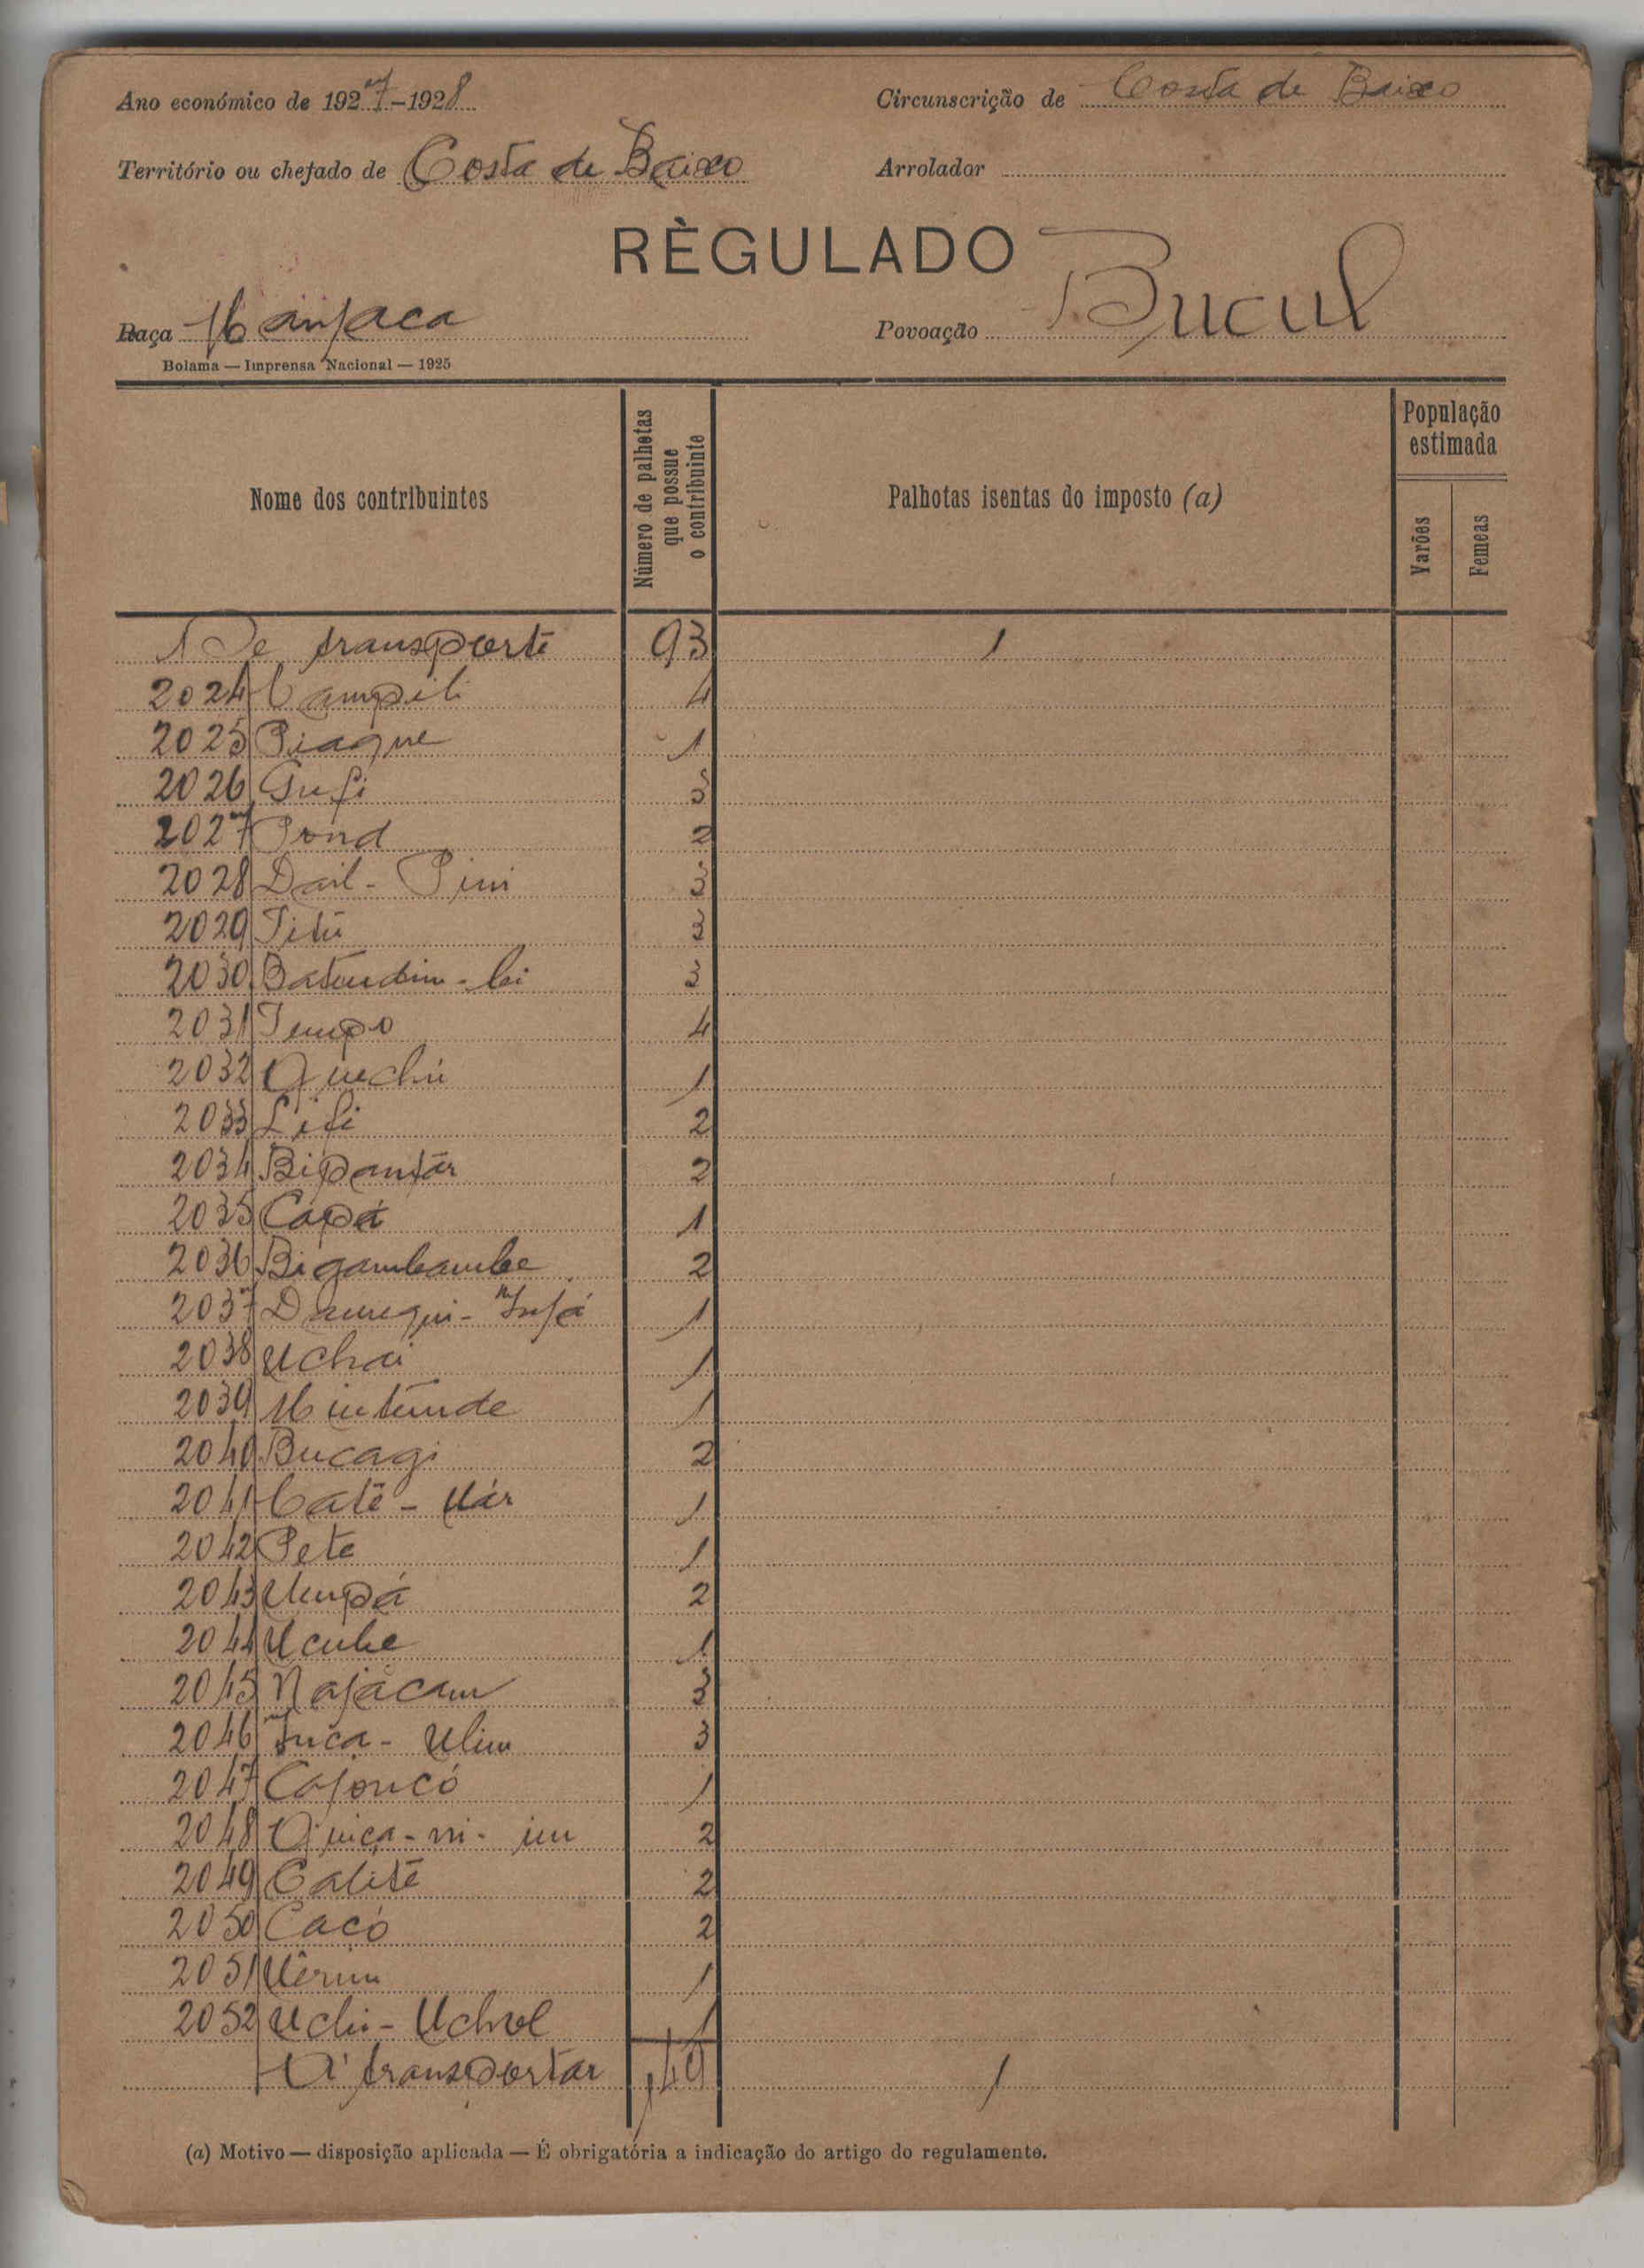 Ano económico de 1927-1928 Circunscrição de Costa de Baixo
Território ou chefado de Costa de Baixo Arrolador
RÈGULADO
Raça Manjaca Povoação Bucul
Bolama — Imprensa Nacional — 1925
Nome dos contribuintes
Número de palhotas que possue o contribuinte
Palhotas isentas do imposto (a)
População estimada
Varões
Femeas
De transporte 93 1
2024 Campili 4
2025 Piaque 1
2026 Gufi 3
2027 Pond 2
2028 Dail - Pini 3
2029 Titú 3
2030 Batundim - lai 3
2031 Tempo 4
2032 Quechú 1
2033 Lifi 2
2034 Bipantar 2
2035 Capá 1
2036 Bigambambe 2
2037 1
2038 Uchai 1
2039 Mintunde 1
2040 Bucagi 2
2041 Caté - Uár 1
2042 Pete 1
2043 Umpá 2
2044 Ucube 1
2045 Najácam 3
2046 Juca - Ulim 3
2047 Cajoucó 1
2048 Quiça - ni - im 2
2049 Calité 2
2050 Cacó 2
2051 Uêrim 1
2052 Uchi - Uchol 1
A transportar 149 1
(a) Motivo — disposição aplicada — É obrigatória a indicação do artigo do regulamento.